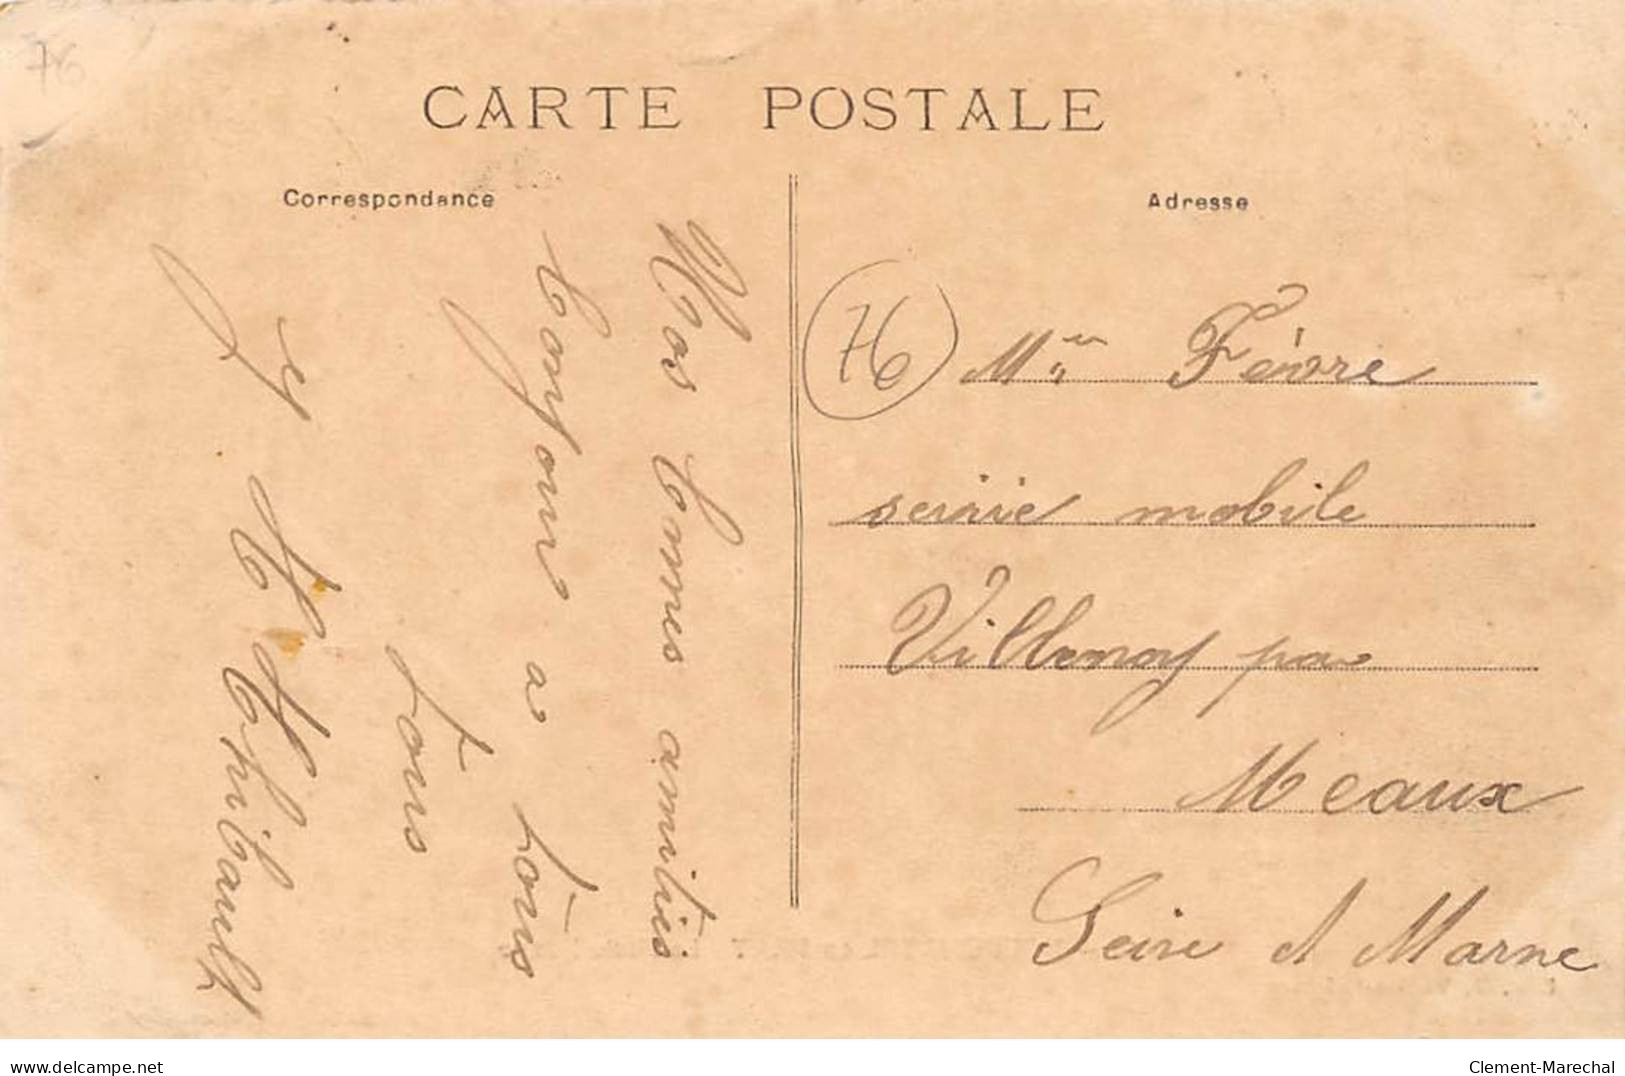 76
CARTE POSTALE
Correspondance
Nos bonnes amitiés
bonjour a tous
tous
H Thibault
Adresse
76
Fèvre
serrie mobile
Villenoy par
Meaux
Seine et Marne
delcampe.net
Clement-Marechal